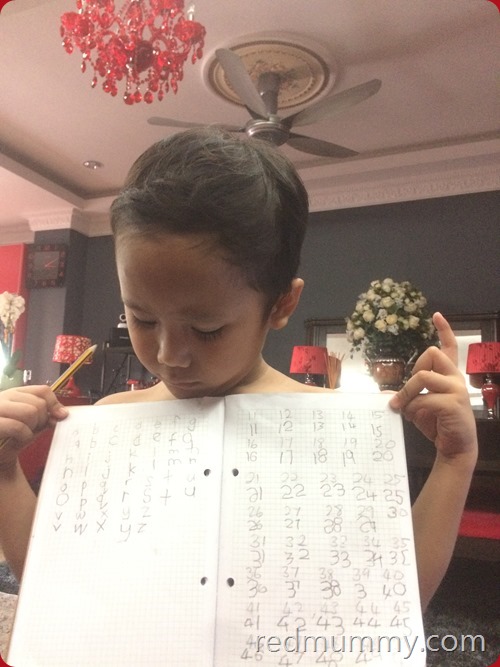 a b c d e f g
a b c d e f g
h i j k l m n
h i j k l m n
o p q r s t u
o p q r s t u
v w x y z
v w x y z
11 12 13 14 15
11 12 13 14 15
16 17 18 19 20
16 17 18 19 20
21 22 23 24 25
21 22 23 24 25
26 27 28 29 30
26 27 28 29
31 32 33 34 35
31 32 33 34 35
36 37 38 39 40
36 37 38 3 40
41 42 43 44 45
41 42 43 44 45
46 47 48
redmummy.com